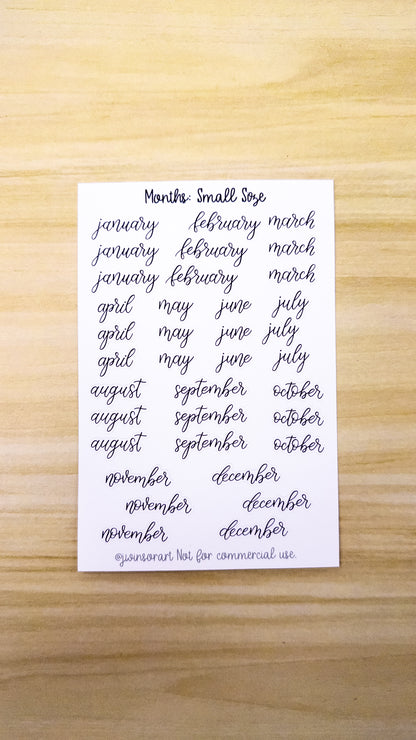 Months: Small Soze
january february march
january february march
january february march
april may june july
april may june july
april may june july
august september october
august september october
august september october
november december
november december
november december
@jwinsorart Not for commercial use.